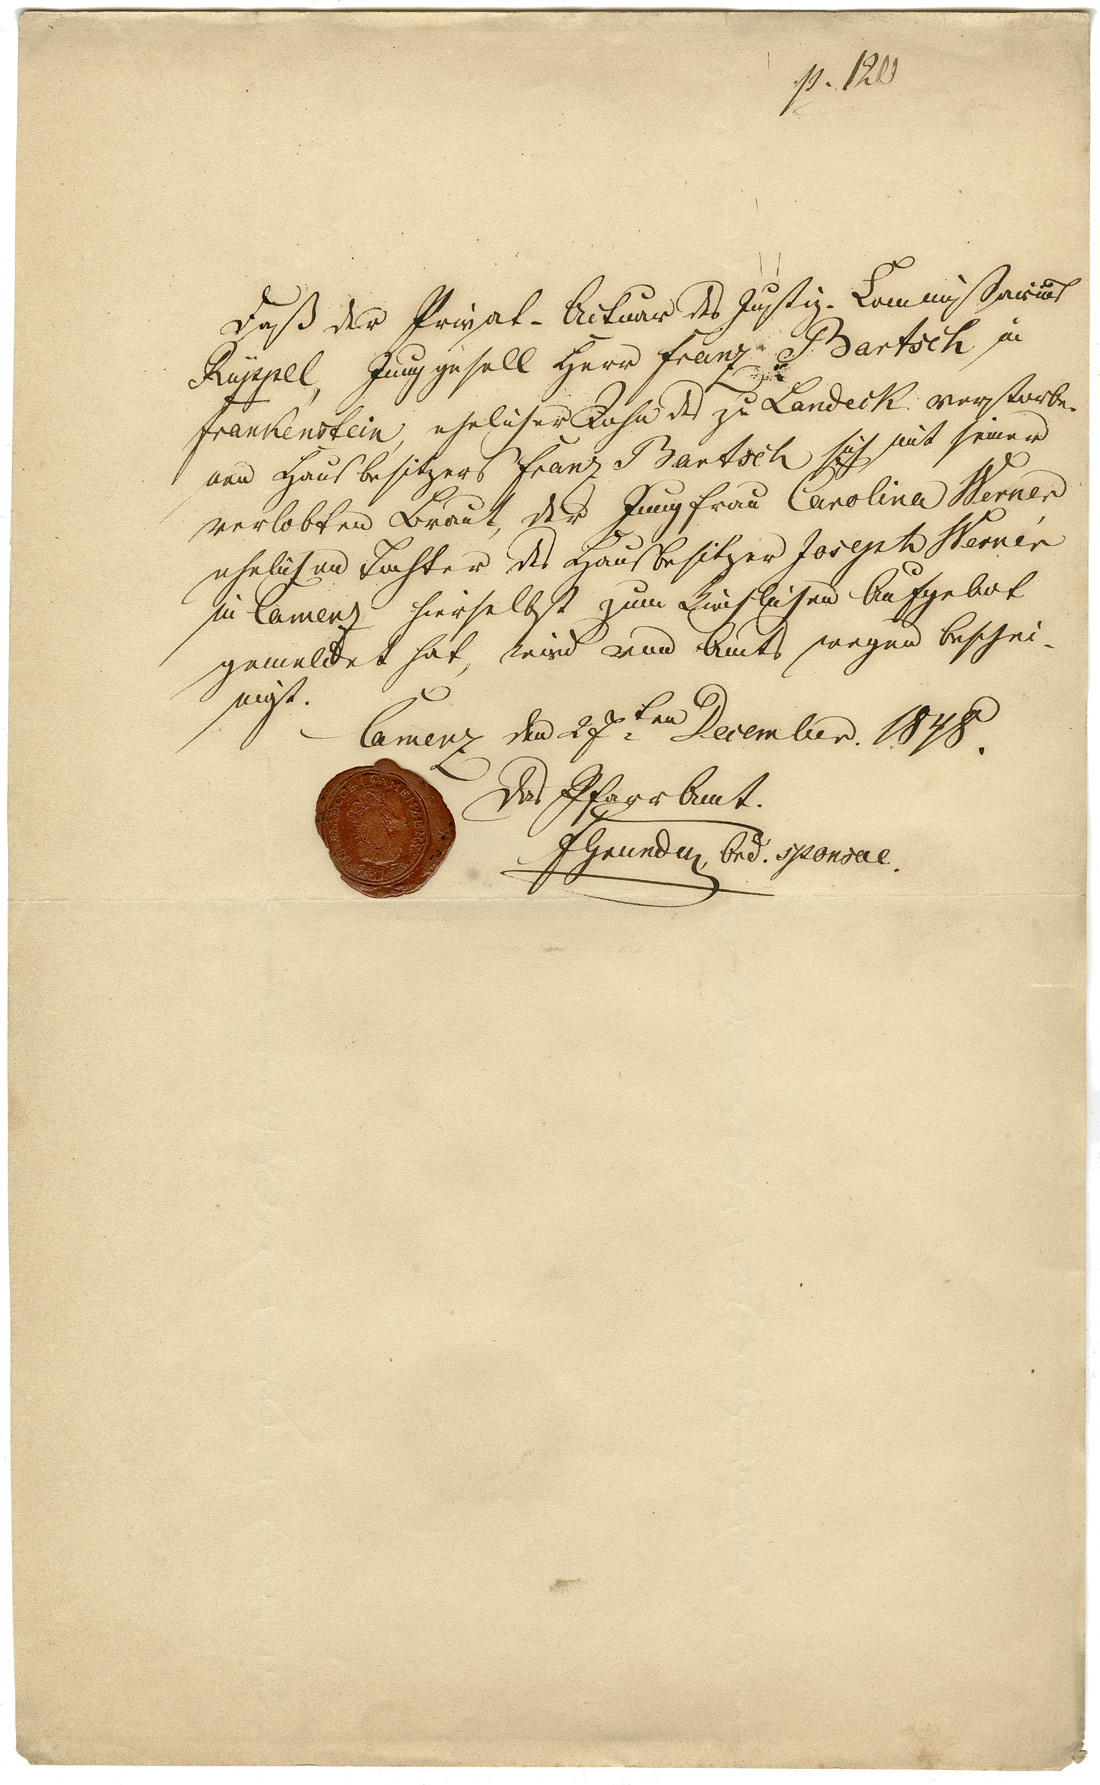 p. 120
Daß der Privat-Actuar des Justiz-Commissarius
Rüppel, Junggesell Herr Franz Bartsch in
Frankenstein, ehelicher Sohn des zu Landeck verstorbe-
nen Hausbesitzers Franz Bartsch sich mit seiner
verlobten Braut, der Jungfrau Carolina Werner
ehelichen Tochter des Hausbesitzer Joseph Werner
in Camenz hierselbst zum kirchlichen Aufgebot
gemeldet hat, wird von Amts wegen beschei-
nigt.
Camenz den 27ten December. 1848.
Das Pfarramt.
sponsae.